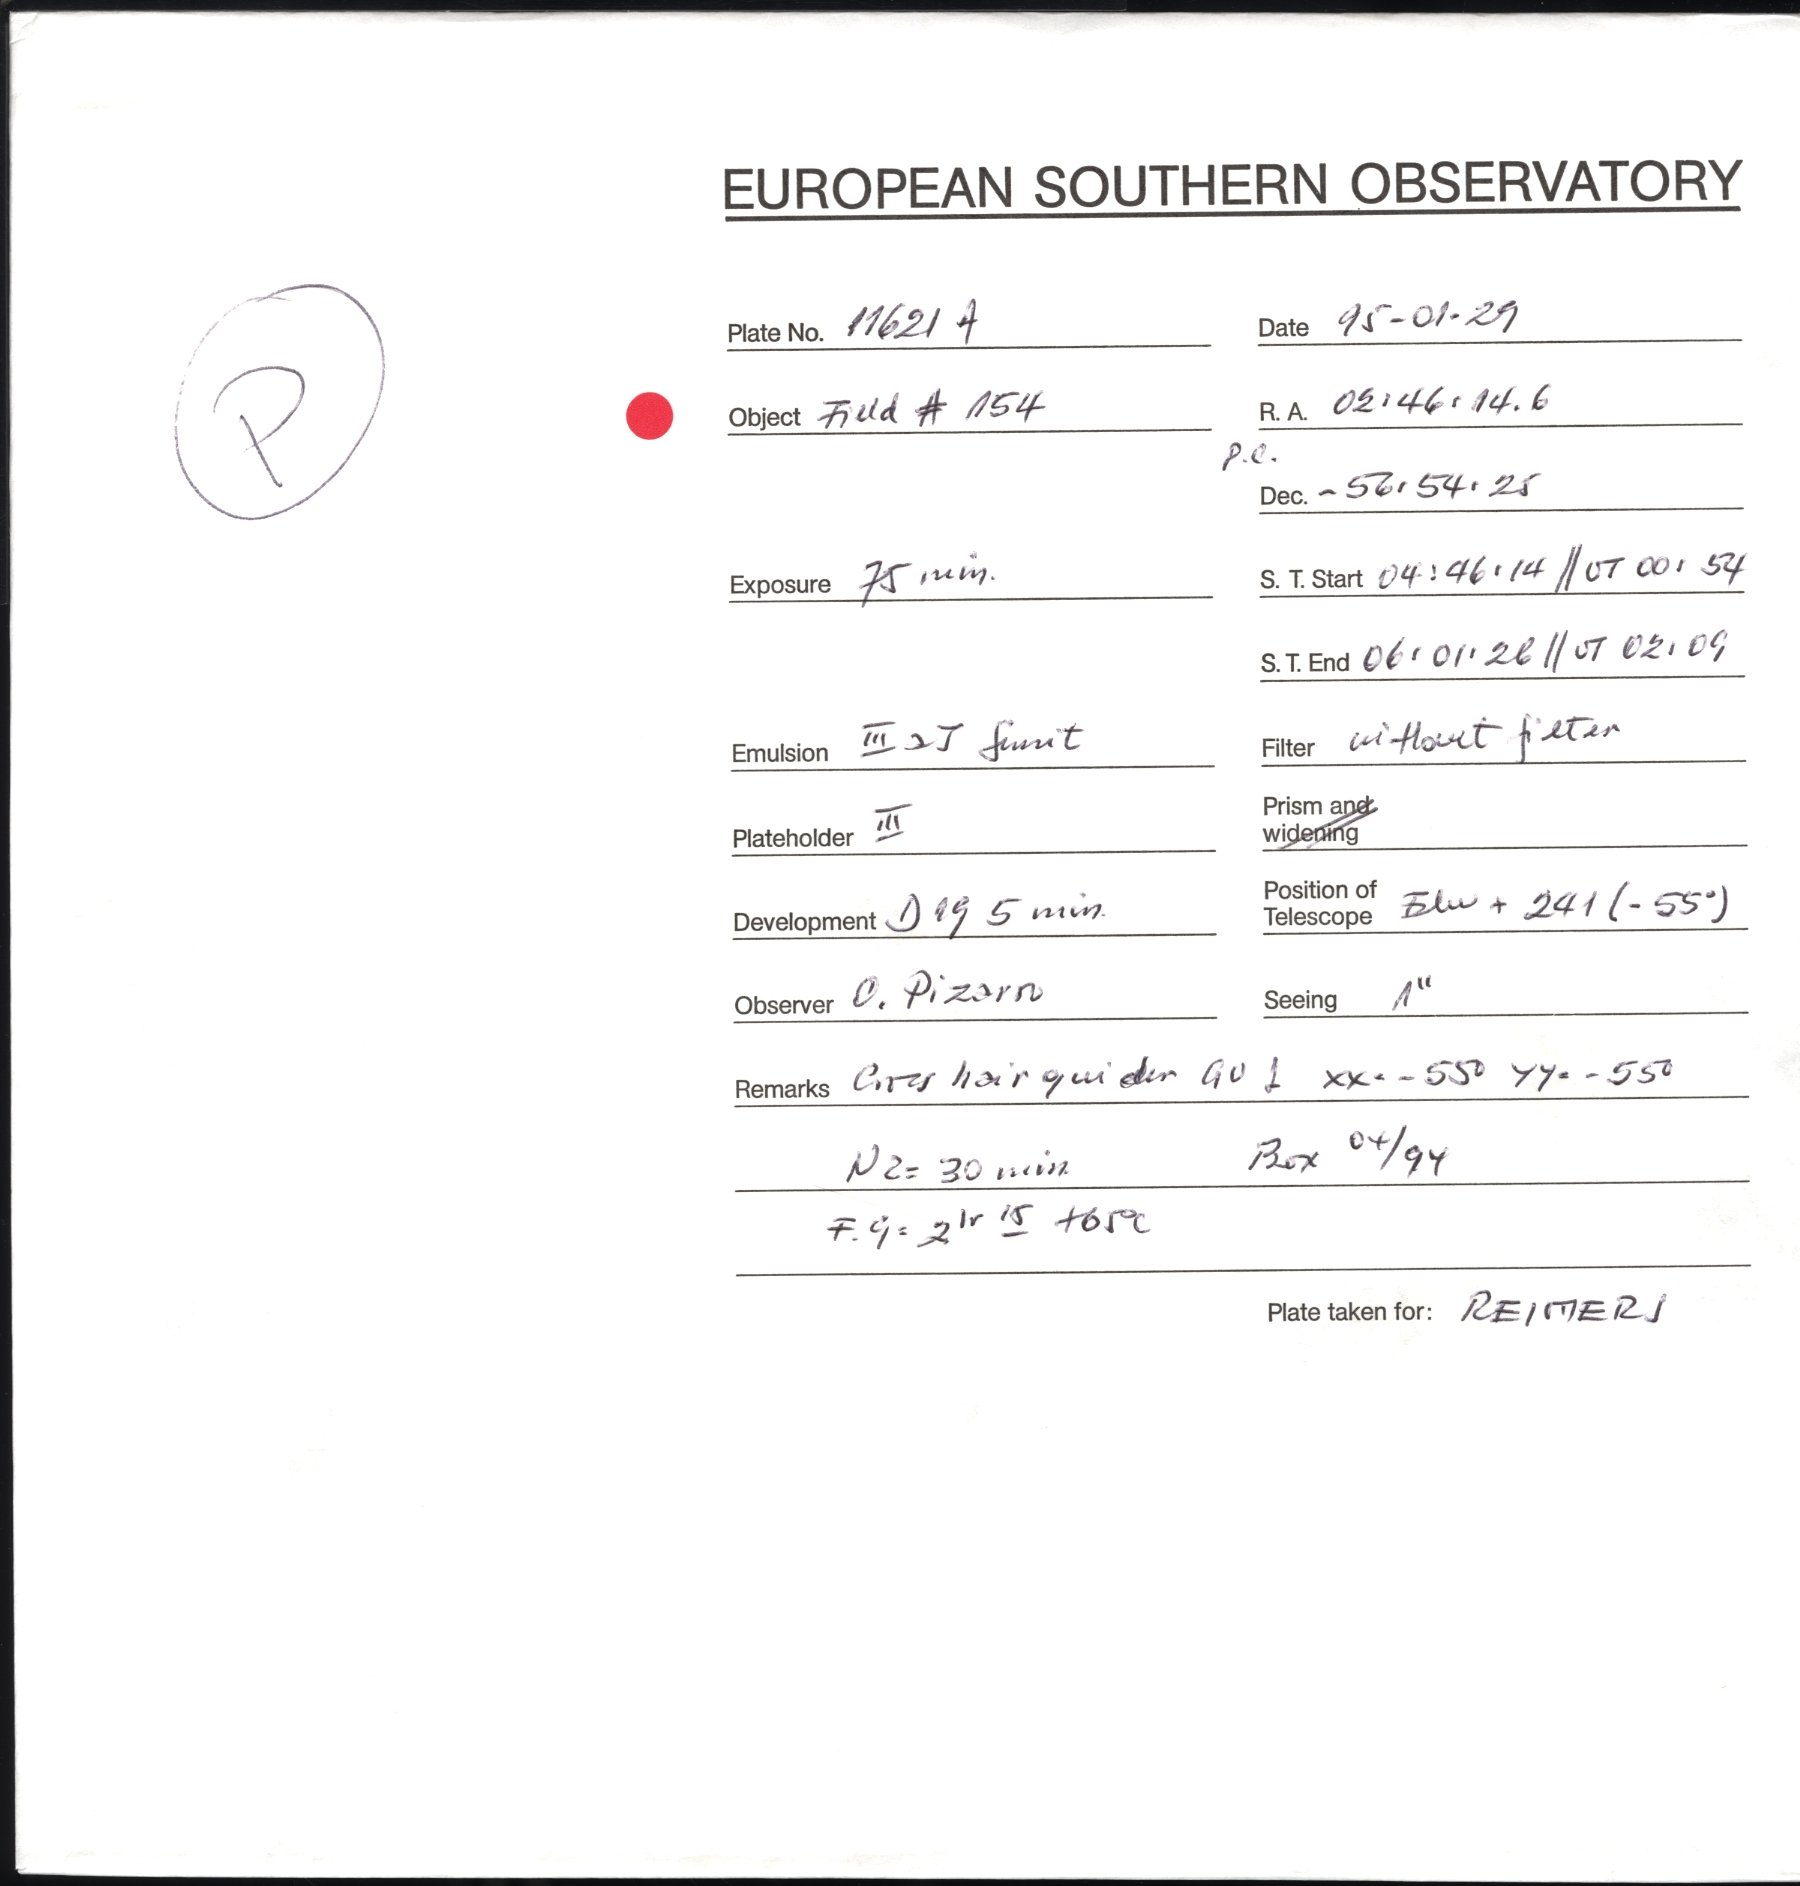 EUROPEAN SOUTHERN OBSERVATORY
P
Plate No. 11621 A
Date 95-01-29
Object Field # 154
R. A. 02:46:14.6
P.C.
Dec. -56:54:25
Exposure 75 min.
S. T. Start 04:46:14 // UT 00:54
S. T. End 06:01:26 // UT 02:09
Emulsion III aJ
Filter without filter
Plateholder III
Prism and
widening
Development D 19 5 min.
Position of
Telescope + 241 (-55°)
Observer O. Pizarro
Seeing 1"
Remarks Cross hair guider xx= -550 yy= -550
N2= 30 min Box 04/94
F.G= 2hr 15 +65°C
Plate taken for: REIMERS